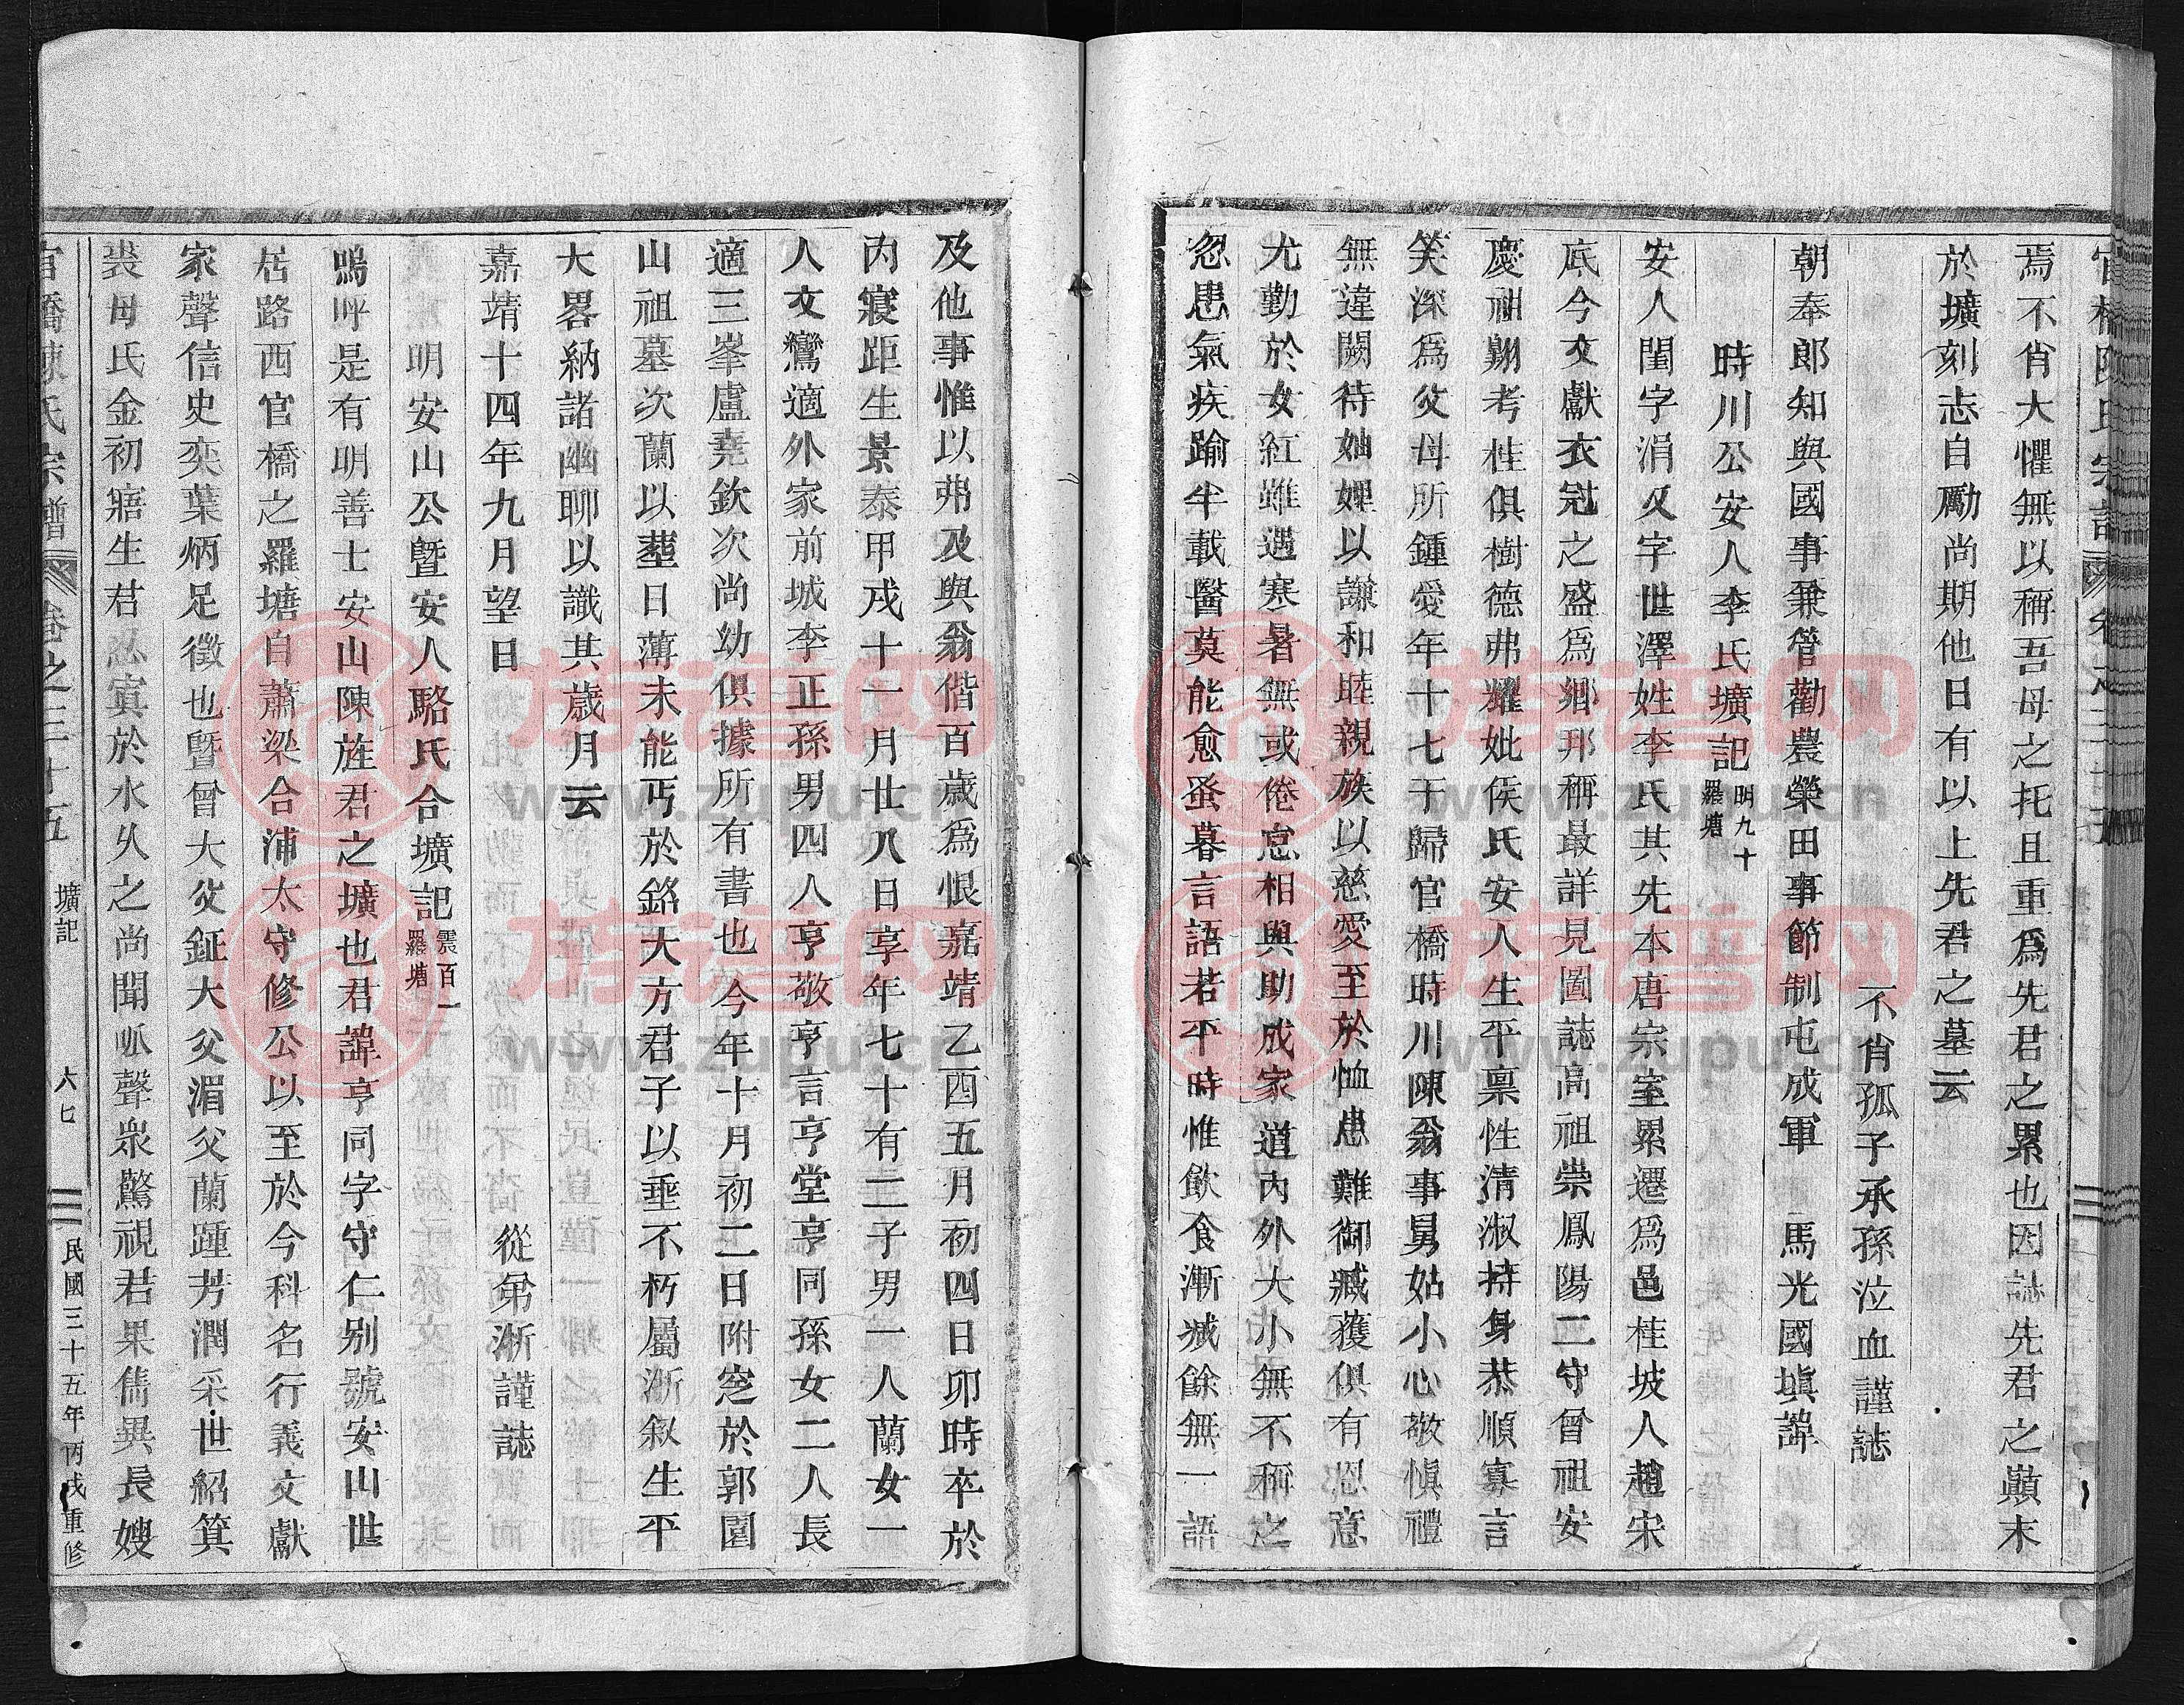 官橋陳氏宗譜 卷之三十五
焉不肖大懼無以稱吾母之托且重爲先君之累也因誌先君之巔末
於壙刻志自勵尚期他日有以上先君之墓云
不肖孤子承孫泣血謹誌
朝奉郎知與國事兼管勸農榮田事節制屯成軍 馬光國塡諱
時川公安人李氏壙記 明九十 羅塘
安人閨字涓又字世澤姓李氏其先本唐宗室累遷爲邑桂坡人趙宋
底今文獻衣冠之盛爲鄉邦稱最詳見圖誌高祖崇鳳陽二守曾祖安
慶祖翱考桂俱樹德弗耀妣侯氏安人生平稟性清淑持身恭順寡言
笑深爲父母所鍾愛年十七于歸官橋時川陳翁事舅姑小心敬愼禮
無違闕待妯娌以謙和睦親族以慈愛至於恤患難御臧獲俱有恩意
尤勤於女紅雖遇寒暑無或倦怠相與助成家道內外大小無不稱之
忽患氣疾踰半載醫莫能愈蚤暮言語若平時惟飲食漸減餘無一語
及他事惟以弗及與翁偕百歲爲恨嘉靖乙酉五月初四日卯時卒於
內寢距生景泰甲戌十一月廿八日享年七十有二子男一人蘭女一
人文鸞適外家前城李正孫男四人亨敬亨言亨堂亨同孫女二人長
適三峯盧堯欽次尚幼俱據所有書也今年十月初二日附窆於郭園
山祖墓次蘭以葬日薄未能丐於銘大方君子以垂不朽屬淅敘生平
大畧納諸幽聊以識其歲月云
嘉靖十四年九月望日 從弟淅謹誌
明安山公曁安人駱氏合壙記 震百一 羅塘
嗚呼是有明善士安山陳旌君之壙也君諱亨同字守仁別號安山世
居路西官橋之羅塘自蕭梁合浦太守修公以至於今科名行義文獻
家聲信史奕葉炳足徵也曁曾大父鉦大父湄父蘭踵芳潤采世紹箕
裘母氏金初寤生君忍寘於水久之尚聞呱聲衆驚視君果雋異長嫂
官橋陳氏宗譜 卷之三十五 壙記 六七 民國三十五年丙戌重修
族谱网
www.zupu.cn
族谱网
www.zupu.cn
族谱网
www.zupu.cn
族谱网
www.zupu.cn